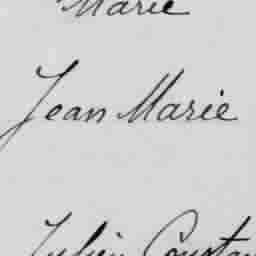 Marie
Jean Marie
Julien Constan